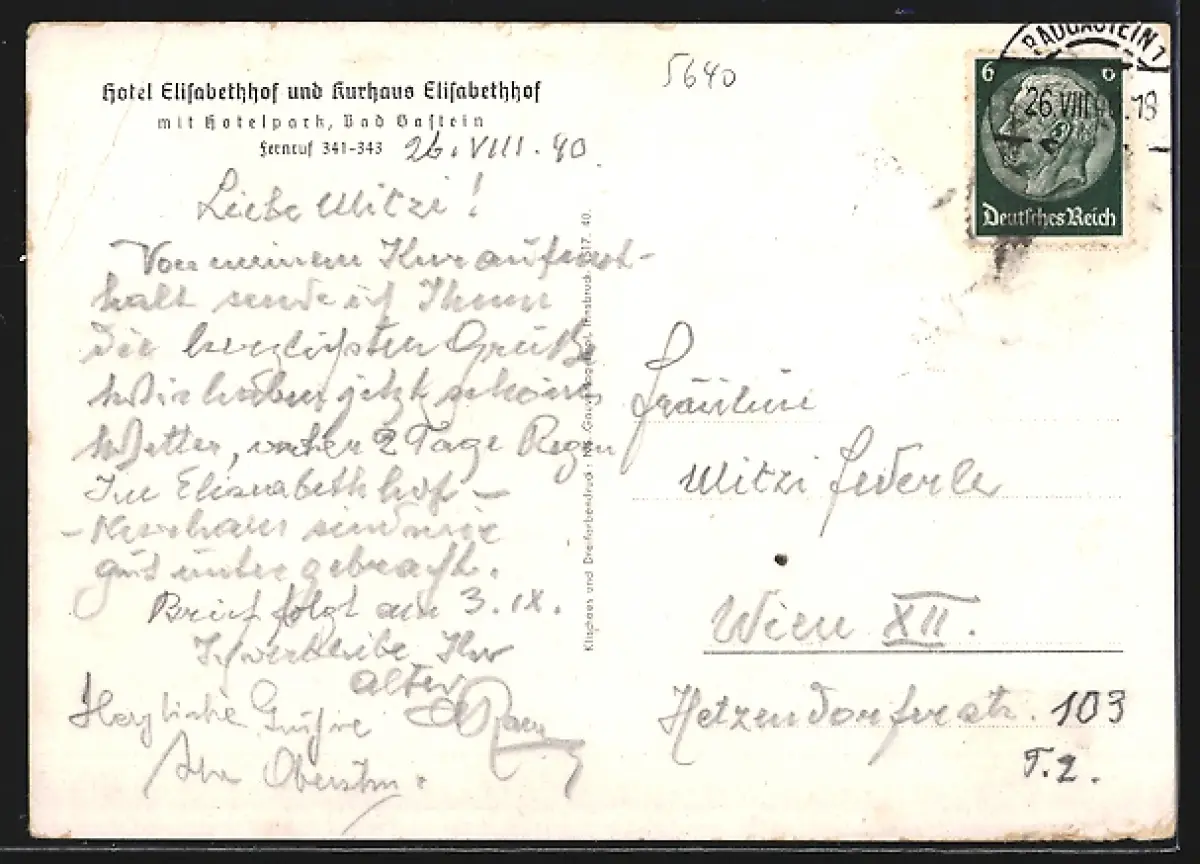 Hotel Elisabethhof und Kurhaus Elisabethhof
mit Hotelpark, Bad Gastein
Fernruf 341-343
26. VIII. 40
Liebe Mitzi!
Von meinem Kuraufent-
halt sende ich Ihnen
die herzlichsten Grüße
Wir haben jetzt schönes
Wetter, vorher 2 Tage Regen
Im Elisabethhof -
- Kurhaus sind wir
gut untergebracht.
Brief folgt am 3. IX.
Ich verbleibe Ihr
alter
Herzliche Grüße
Ihr
Klischees und Dreifarbendruck
Innsbruck
40.
5640
BADGASTEIN 1
26.VIII
18
6
6
Deutsches Reich
Fräulein
Mitzi Federler
Wien XII.
Hetzendorferstr. 103
T. 2.